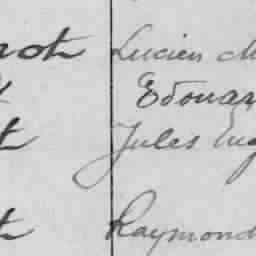 rot Lucien
Edouar
t Jules Eug
t Raymond